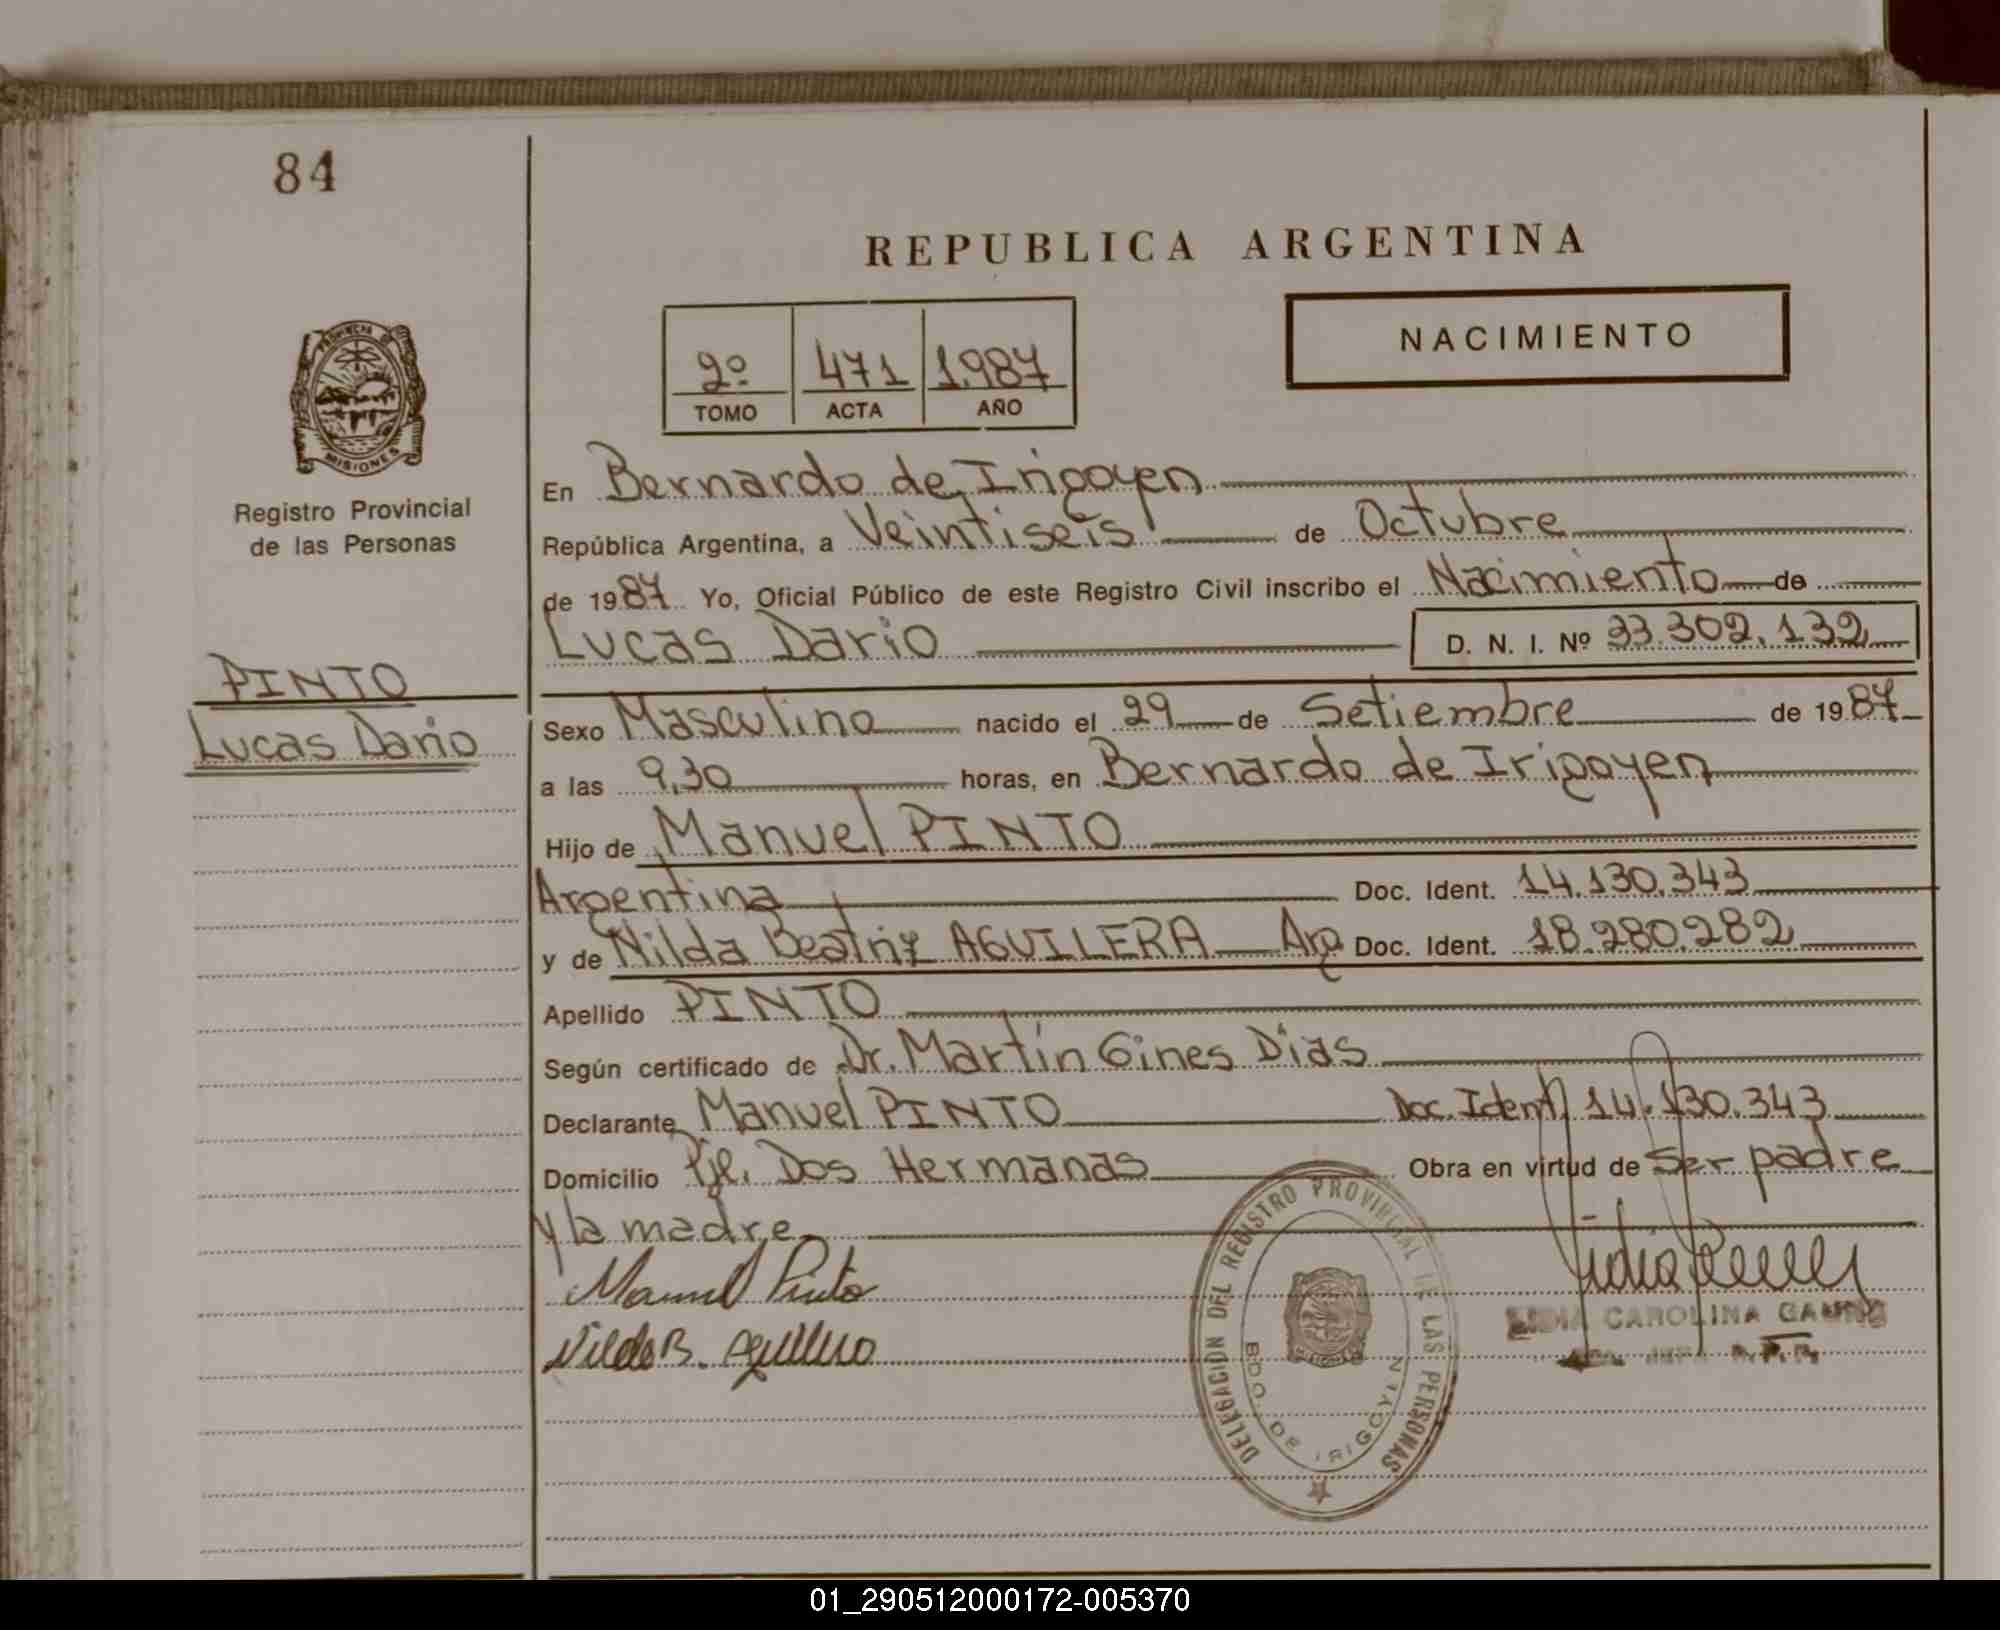 84
REPUBLICA ARGENTINA
NACIMIENTO
2º 471 1.987
TOMO ACTA AÑO
PROVINCIA DE
MISIONES
Registro Provincial
de las Personas
PINTO
Lucas Dario
En Bernardo de Irigoyen
República Argentina, a Veintiseis de Octubre
de 1987 Yo, Oficial Público de este Registro Civil inscribo el Nacimiento de
Lucas Dario D. N. I. Nº 33.302.132
Sexo Masculino nacido el 29 de Setiembre de 1987
a las 9,30 horas, en Bernardo de Irigoyen
Hijo de Manuel PINTO
Argentina Doc. Ident. 14.130.343
y de Nilda Beatriz AGUILERA Arg Doc. Ident. 18.280.282
Apellido PINTO
Según certificado de Dr. Martín Gines Dias
Declarante Manuel PINTO Doc. Ident. 14.130.343
Domicilio Pje. Dos Hermanas Obra en virtud de Ser padre
y la madre
Manuel Pinto
Nilda B. Aguilera
DELEGACION DEL REGISTRO PROVINCIAL DE LAS PERSONAS
BDO. DE IRIGOYEN
LIDIA CAROLINA
01_290512000172-005370